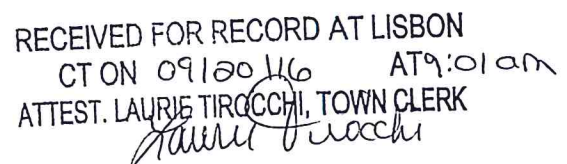 RECEIVED FOR RECORD AT LISBON
CT ON 09/20/16 AT 9:01 am
ATTEST. LAURIE TIROCCHI, TOWN CLERK
Laurie Tirocchi